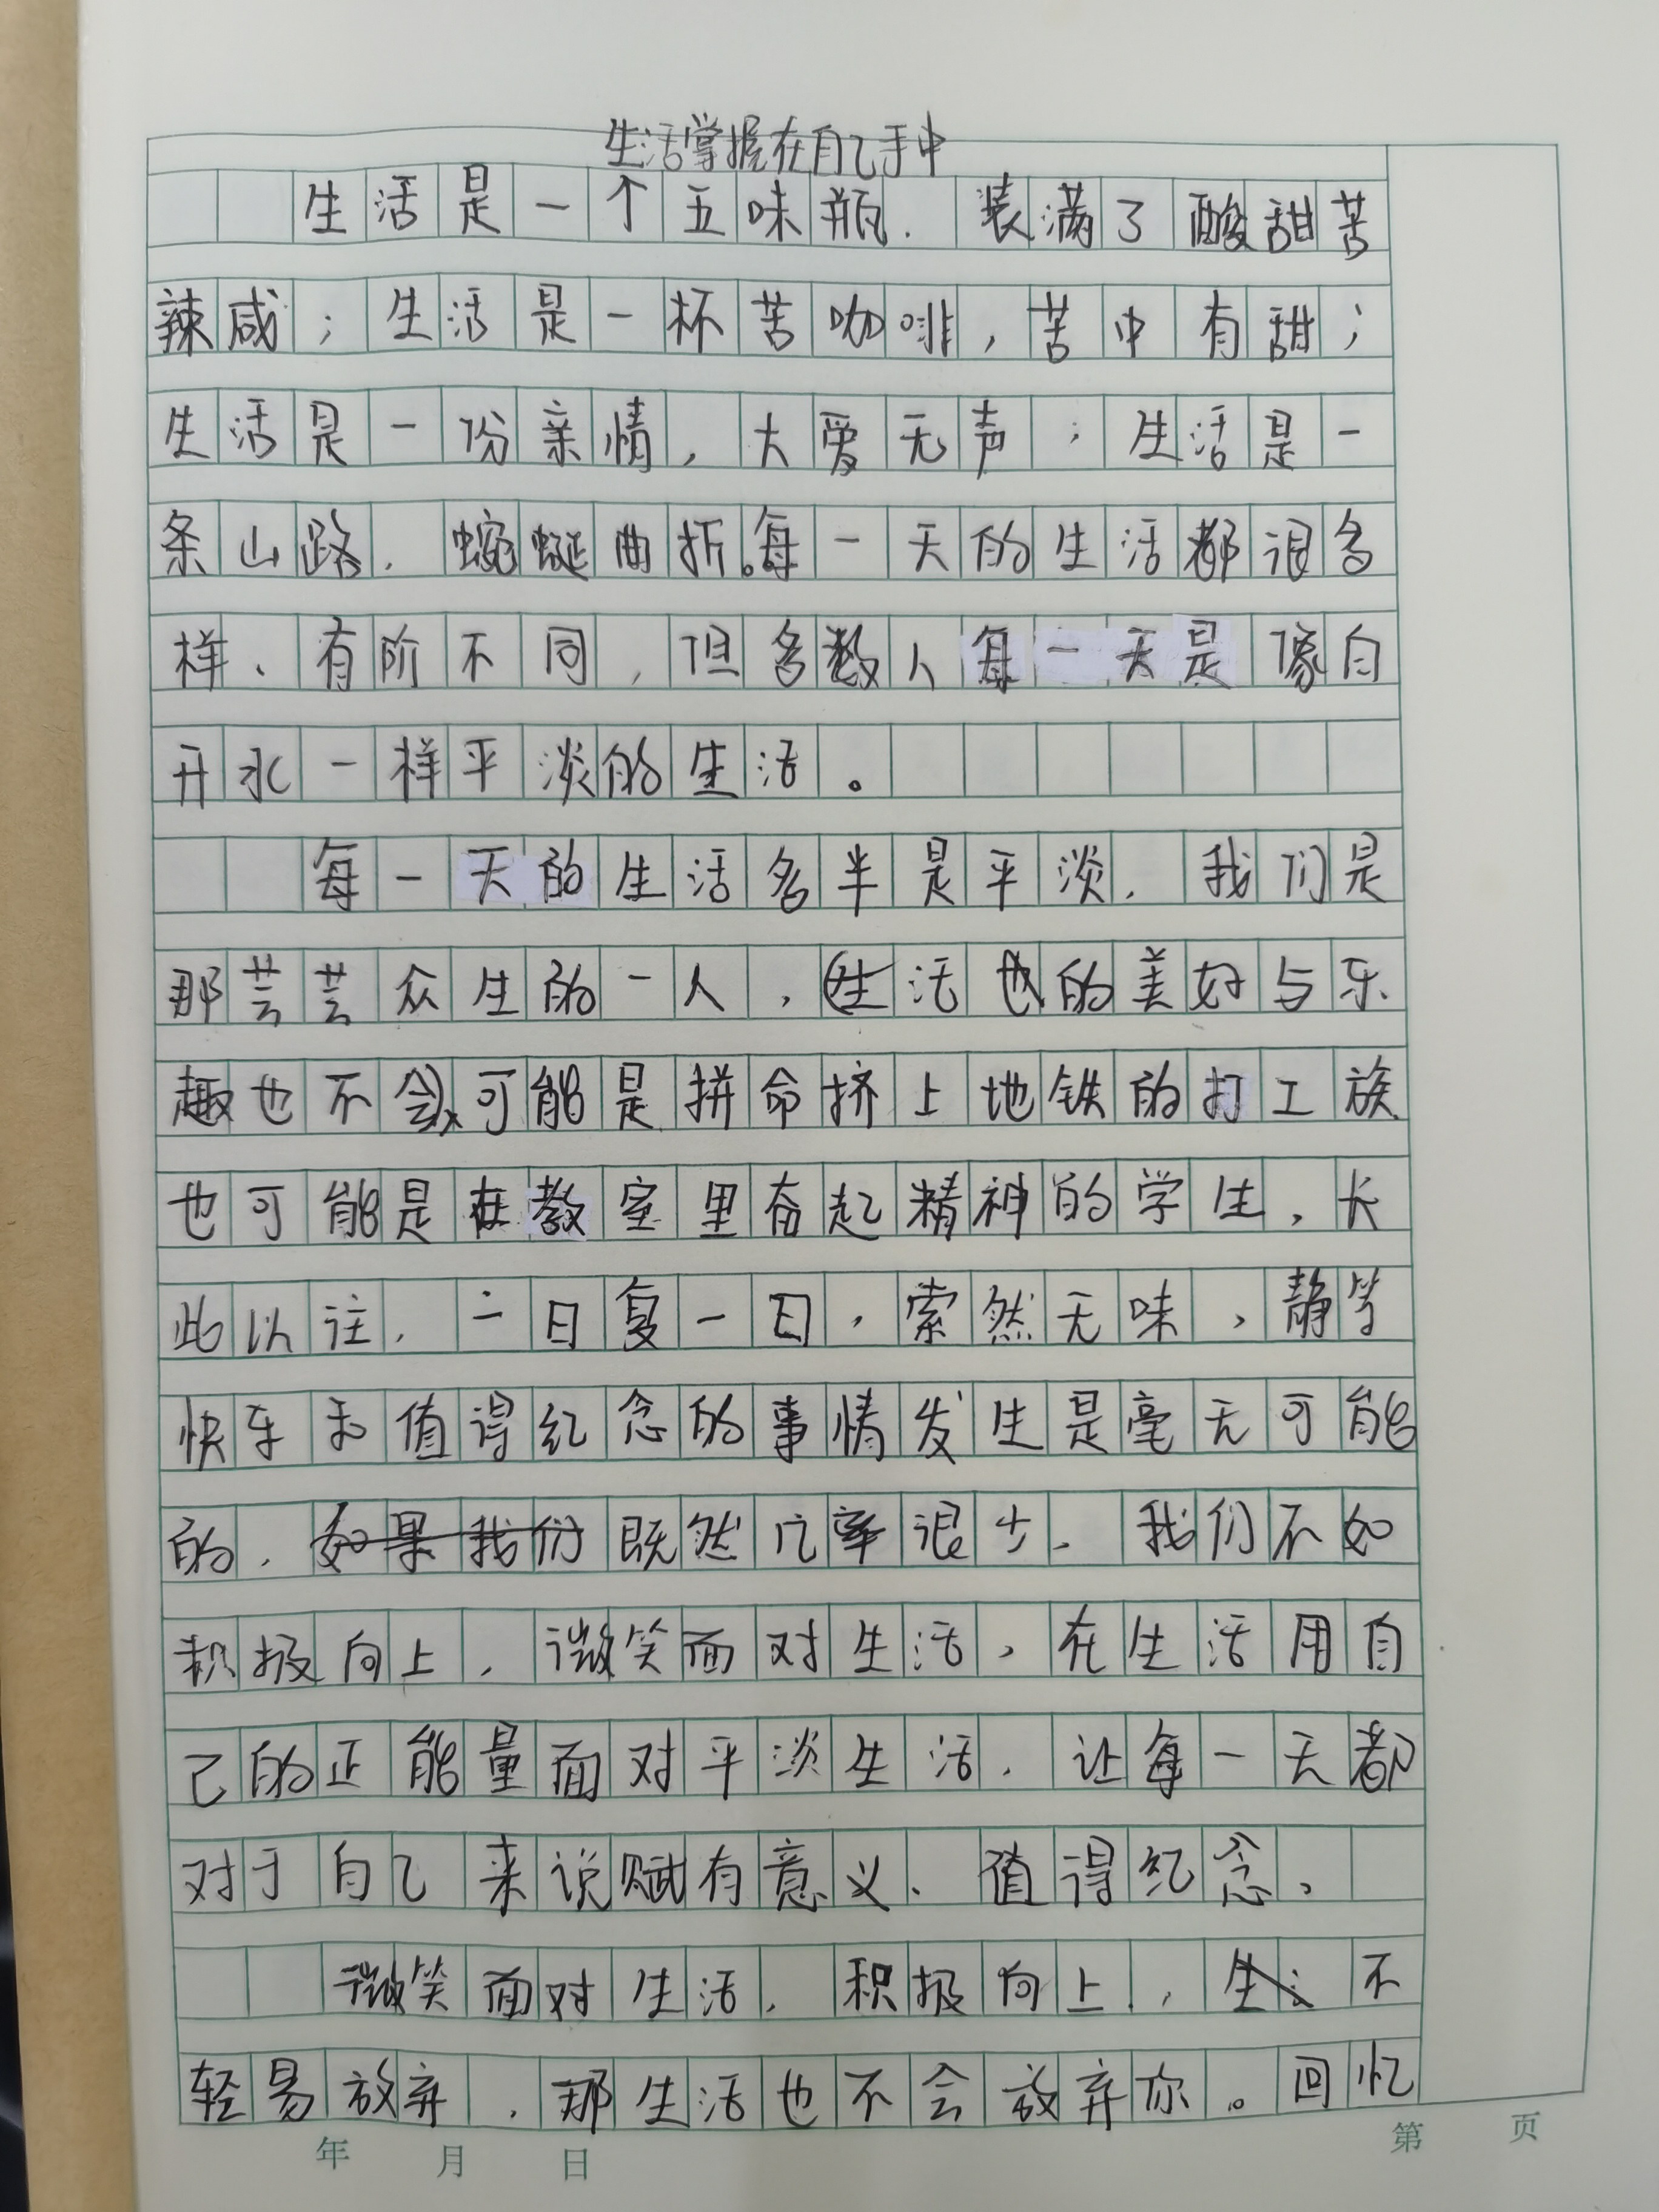 生活掌握在自己手中
生活是一个五味瓶，装满了酸甜苦
辣咸；生活是一杯苦咖啡，苦中有甜；
生活是一份亲情，大爱无声；生活是一
条山路，蜿蜒曲折。每一天的生活都很多
样、有阶不同，但多数人每一天是像白
开水一样平淡的生活。
每一天的生活多半是平淡，我们是
那芸芸众生的一人，生活也的美好与乐
趣也不会可能是拼命挤上地铁的打工族
也可能是在教室里奋起精神的学生，长
此以往，一日复一日，索然无味，静等
快乐和值得纪念的事情发生是毫无可能
的，如果我们既然几率很少，我们不如
积极向上，微笑面对生活，在生活用自
己的正能量面对平淡生活，让每一天都
对于自己来说赋有意义、值得纪念。
微笑面对生活，积极向上，生不
轻易放弃，那生活也不会放弃你。回忆
年 月 日
第 页